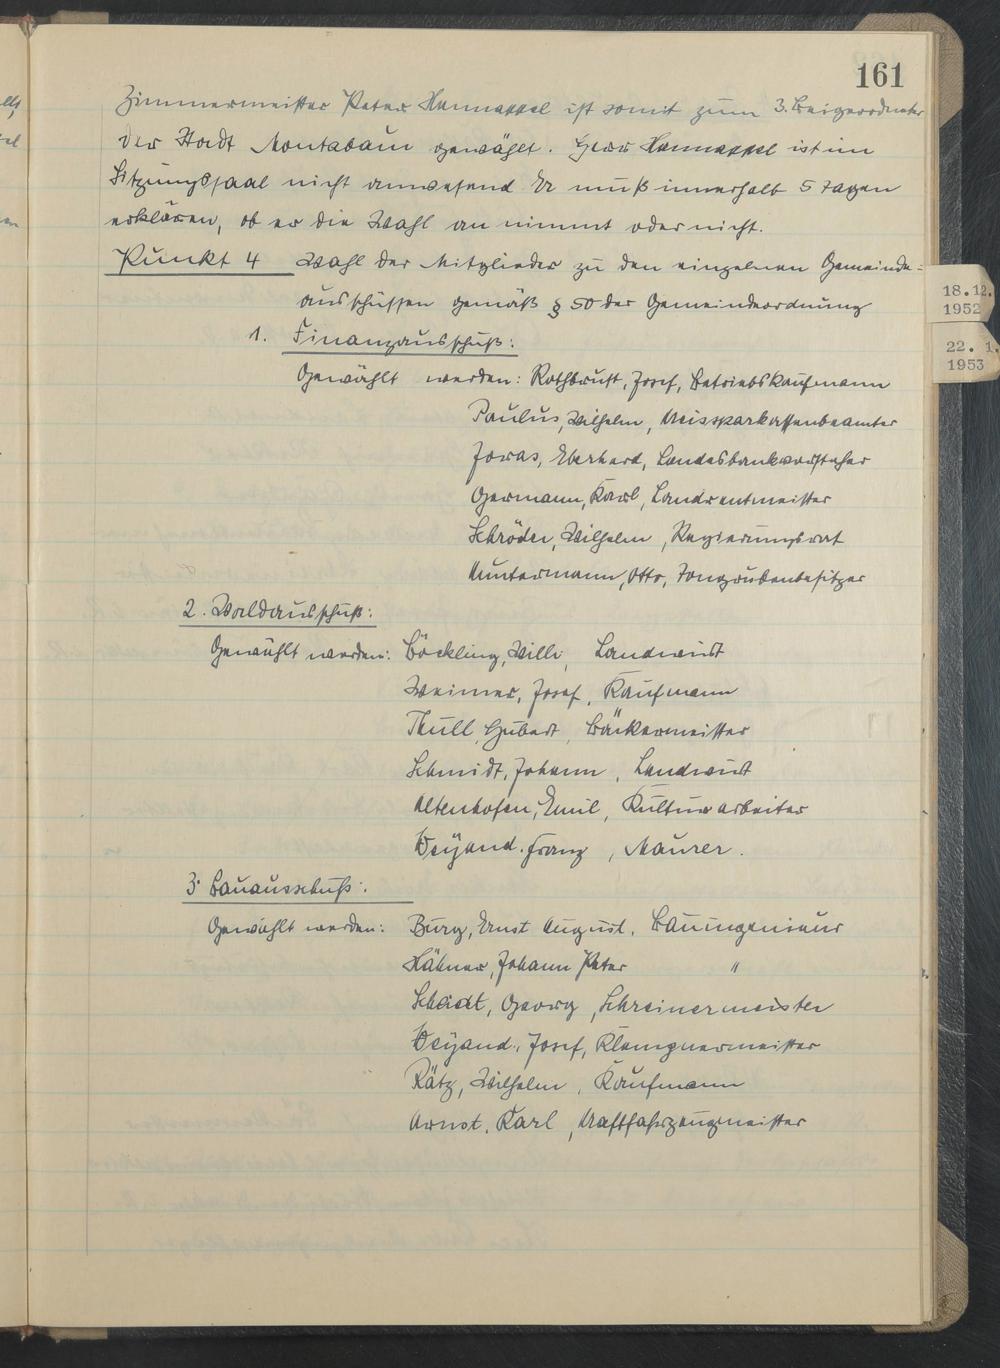 161
Zimmermeister Peter Hannappel ist somit zum 3. Beigeordneter
der Stadt Montabaur gewählt. Herr Hannappel ist im
Sitzungssaal nicht anwesend Er muß innerhalb 5 Tagen
erklären, ob er die Wahl an nimmt oder nicht.
Punkt 4 Wahl der Mitglieder zu den einzelnen Gemeinde=
ausschüssen gemäß § 50 der Gemeindeordnung
1. Finanzausschuß:
Gewählt werden: Rothbrust, Josef, Betriebskaufmann
Paulus, Wilhelm, Kreissparkassenbeamter
Joras, Eberhard, Landesbankvorsteher
Germann, Karl, Landrentmeister
Schröder, Wilhelm, Regierungsrat
Kuntermann, Otto, Tongrubenbesitzer
2. Waldausschuß:
Gewählt werden: Böckling, Willi, Landwirt
Weimer, Josef, Kaufmann
Thull, Hubert, Bäckermeister
Schmidt, Johann, Landwirt
Altenhofen, Emil, Kulturarbeiter
Weyand. Franz, Maurer.
3. Bauausschuß:
Gewählt werden: Burg, Ernst August, Bauingenieur
Hübner, Johann Peter "
Georg, Schreinermeister
Weyand, Josef, Klempnermeister
Rätz, Wilhelm, Kaufmann
Arnst, Karl, Kraftfahrzeugmeister
18.12.
1952
22. 1.
1953